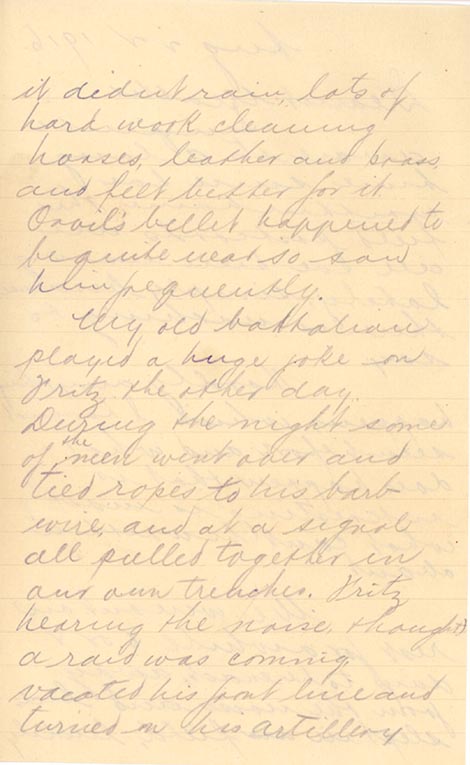 it didnt rain, lots of
hard work cleaning
horses, leather and brass,
and felt better for it
Orvil's billet happened to
be quite near so saw
him frequently.
My old battalian
played a huge joke on
Fritz the other day.
During the night some
of the men went over and
tied ropes to his barb
wire, and at a signal
all pulled together in
our own trenches. Fritz
hearing the noise, thought
a raid was coming
vacated his front line and
turned on his artillery